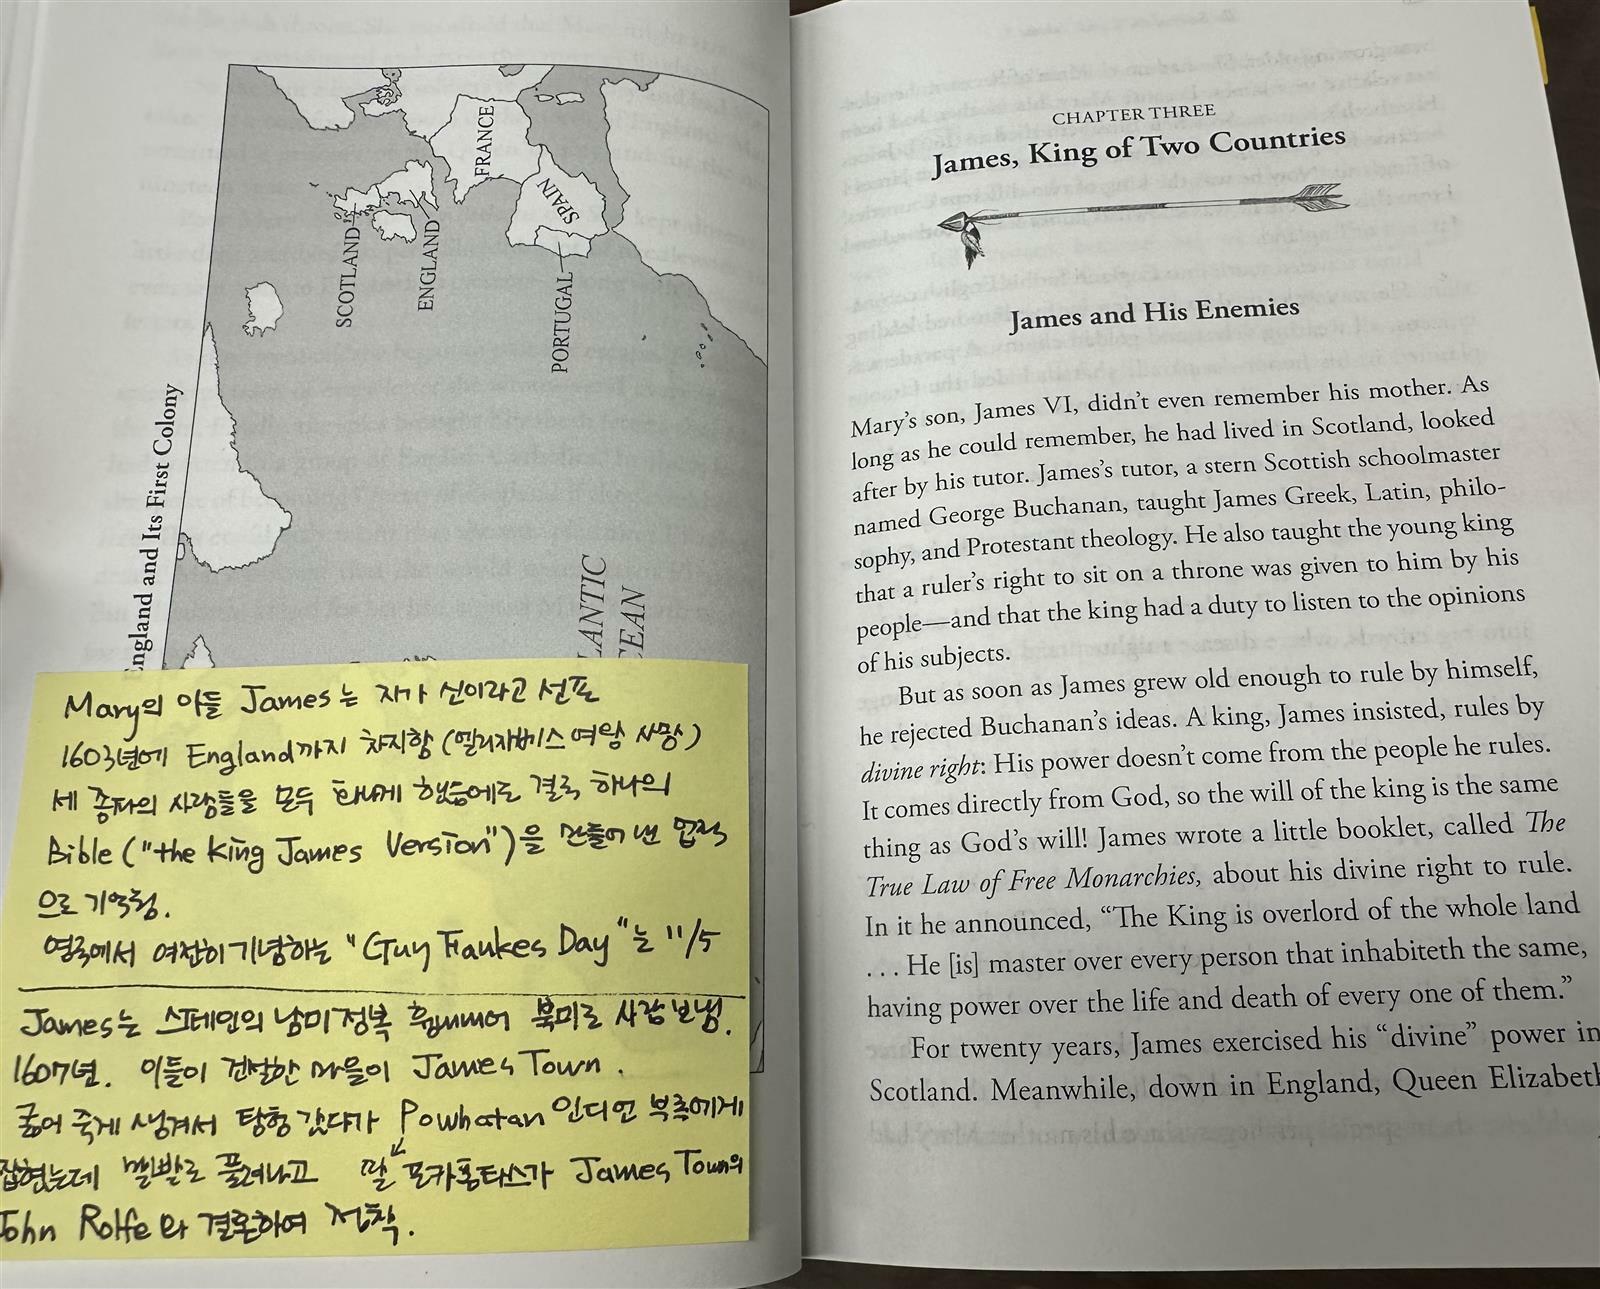 SCOTLAND
ENGLAND
FRANCE
SPAIN
PORTUGAL
England and Its First Colony
LANTIC
CEAN
Mary의 아들 James는 자가 신이라고 선포
1603년에 England까지 차지함 (엘리자베스 여왕 사망)
세 종파의 사람들을 모두 화나게 했음에도 결국 하나의
Bible ("the King James Version")을 만들어 낸 업적
으로 기억됨.
영국에서 여전히 기념하는 "Guy Fawkes Day"는 11/5
James는 스페인의 남미 정복 북미로 사람 보냄.
1607년. 이들이 건설한 마을이 James Town.
굶어 죽게 생겨서 탐험 갔다가 Powhatan 인디언 부족에게
잡혔는데 풀려나고 딸 포카혼타스가 James Town의
John Rolfe와 결혼하여 정착.
CHAPTER THREE
James, King of Two Countries
James and His Enemies
Mary's son, James VI, didn't even remember his mother. As
long as he could remember, he had lived in Scotland, looked
after by his tutor. James's tutor, a stern Scottish schoolmaster
named George Buchanan, taught James Greek, Latin, philo-
sophy, and Protestant theology. He also taught the young king
that a ruler's right to sit on a throne was given to him by his
people—and that the king had a duty to listen to the opinions
of his subjects.
But as soon as James grew old enough to rule by himself,
he rejected Buchanan's ideas. A king, James insisted, rules by
divine right: His power doesn't come from the people he rules.
It comes directly from God, so the will of the king is the same
thing as God's will! James wrote a little booklet, called The
True Law of Free Monarchies, about his divine right to rule.
In it he announced, "The King is overlord of the whole land
. . . He [is] master over every person that inhabiteth the same,
having power over the life and death of every one of them."
For twenty years, James exercised his "divine" power in
Scotland. Meanwhile, down in England, Queen Elizabeth